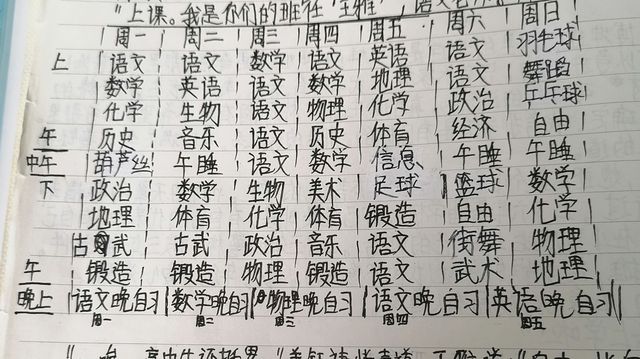 "上课。我是你们的班任"王雅",语文老师
周一 周二 周三 周四 周五 周六 周日
上 语文 语文 数学 语文 英语 语文 羽毛球
数学 英语 语文 数学 地理 语文 舞蹈
化学 生物 语文 物理 化学 政治 乒乓球
午 历史 音乐 语文 历史 体育 经济 自由
中午 葫芦丝 午睡 语文 数学 信息 午睡 午睡
下 政治 数学 生物 美术 足球 篮球 数学
地理 体育 化学 体育 锻造 自由 化学
古武 古武 政治 音乐 语文 街舞 物理
午 锻造 锻造 物理 锻造 语文 武术 地理
晚上 语文晚自习 数学晚自习 物理晚自习 语文晚自习 英语晚自习
周一 周二 周三 周四 周五